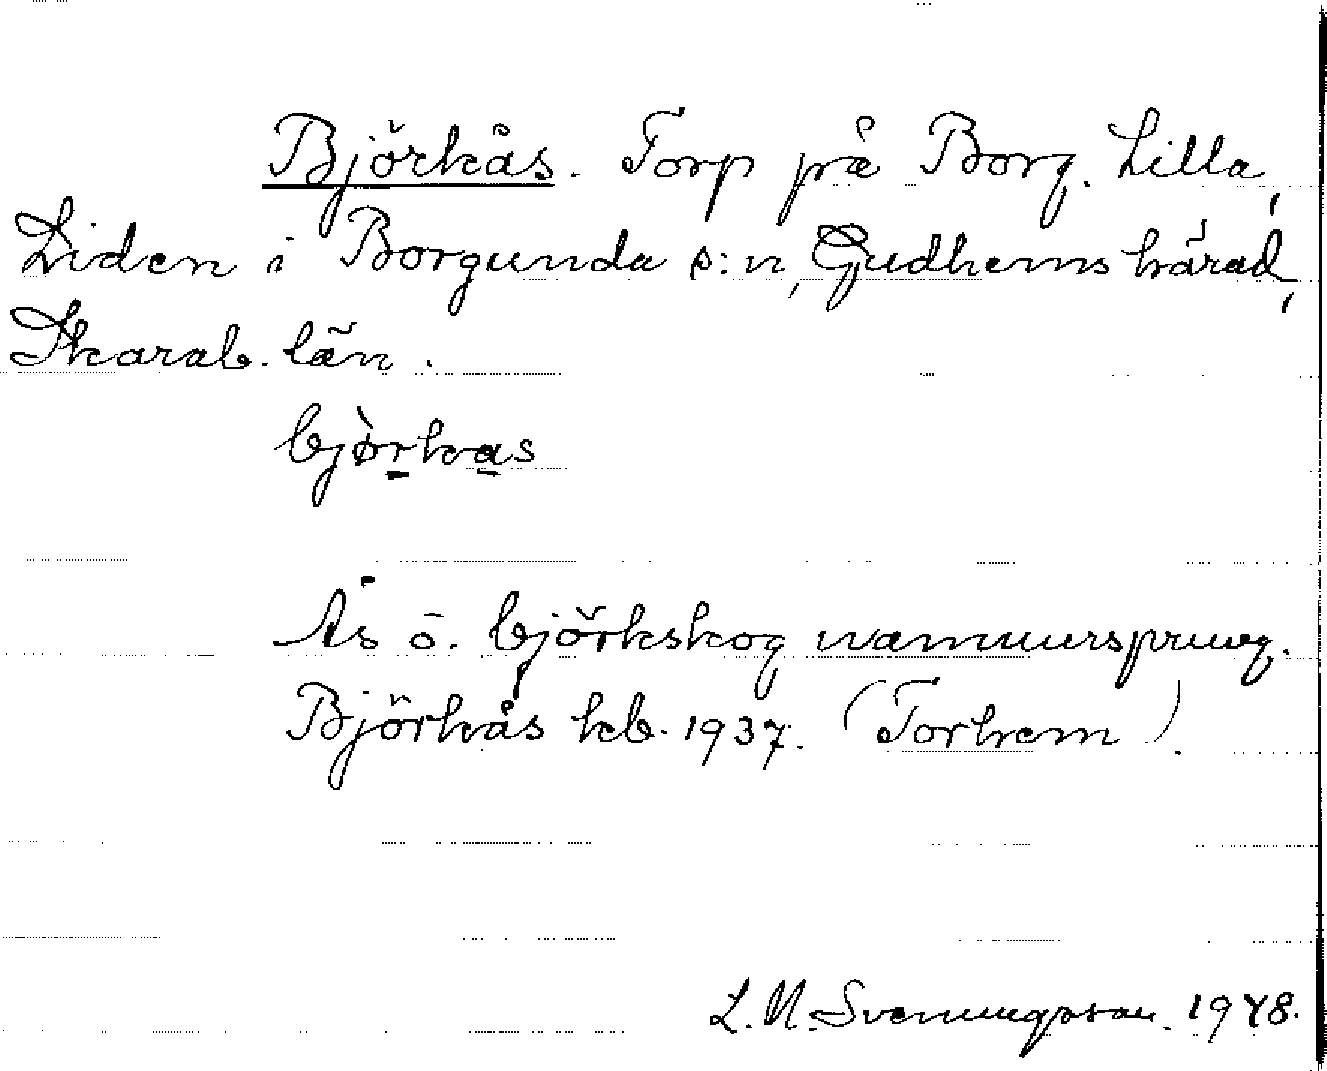 Björkås. Torp på Borg. Lilla,
Liden i Borgunda s:n, Gudhems härad,
Skarab. län.
bjòrkas
Ås o. björkskog namnursprung.
Björkås kb. 1937. (Torhem).
L. N. Svenungsson. 1948.